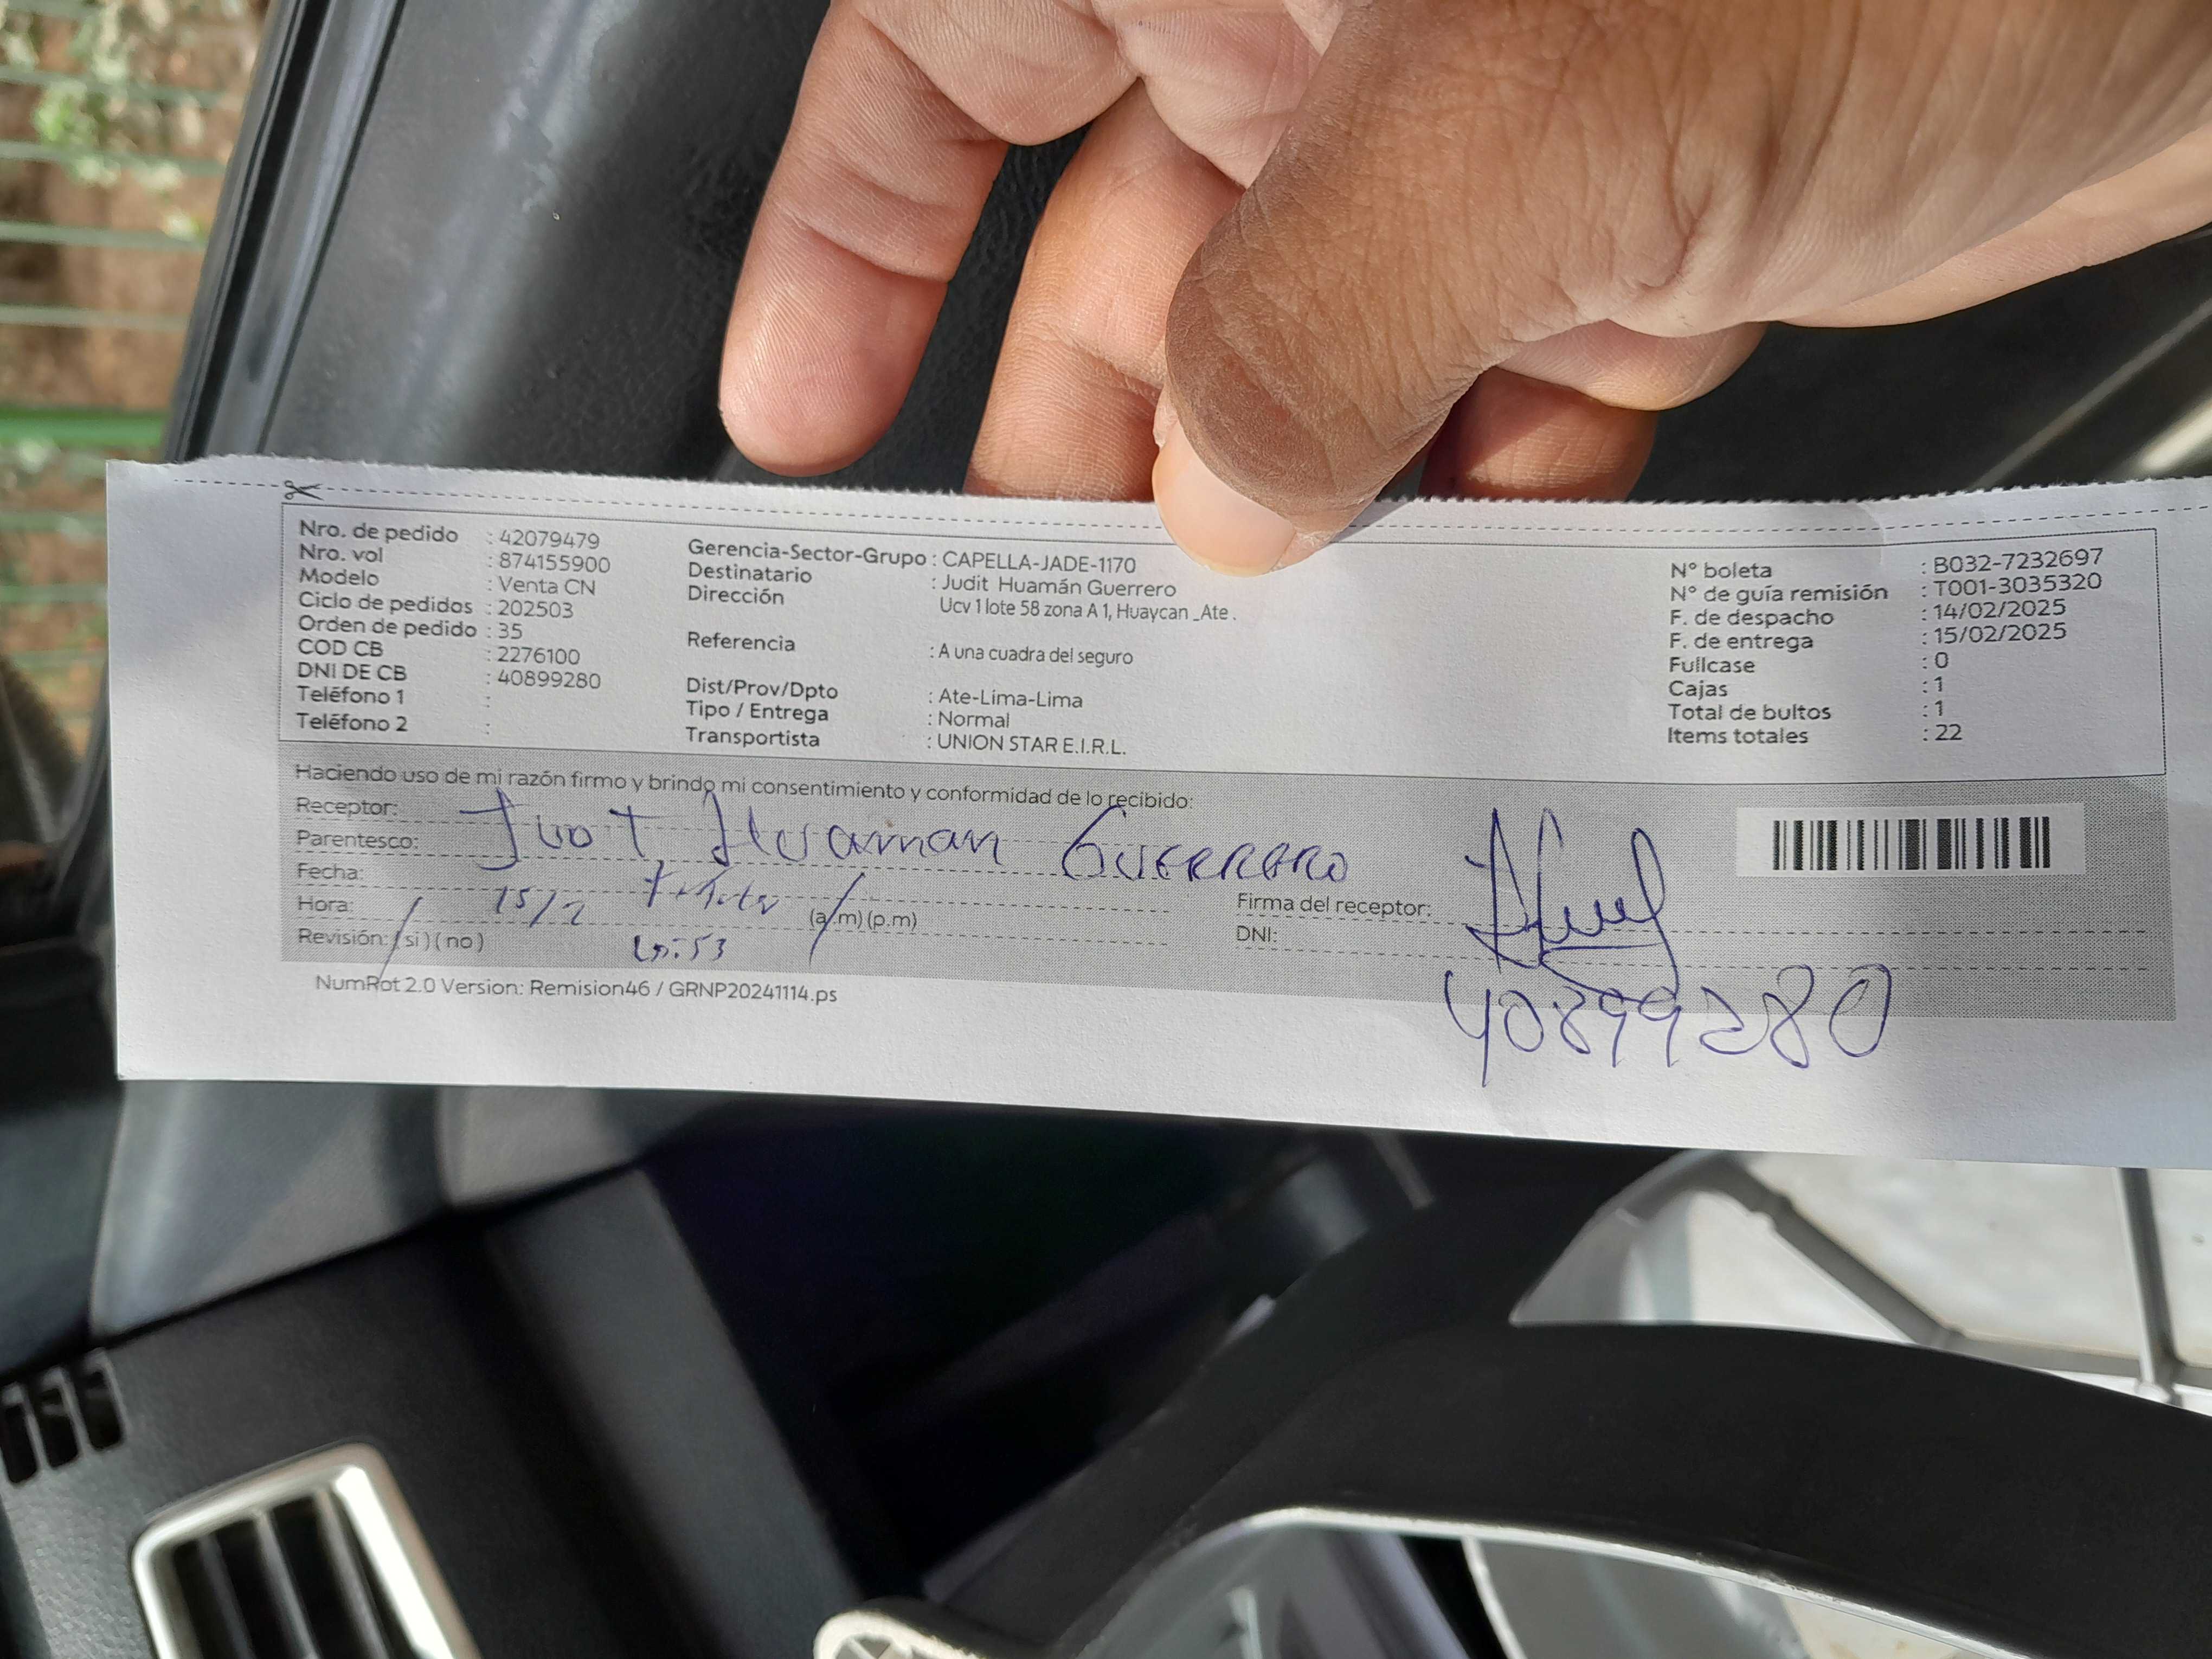 Nro. de pedido : 42079479
Nro. vol : 874155900
Modelo : Venta CN
Ciclo de pedidos : 202503
Orden de pedido : 35
COD CB : 2276100
DNI DE CB : 40899280
Teléfono 1 :
Teléfono 2 :
Gerencia-Sector-Grupo : CAPELLA-JADE-1170
Destinatario : Judit Huamán Guerrero
Dirección Ucv 1 lote 58 zona A 1, Huaycan _Ate .
Referencia : A una cuadra del seguro
Dist/Prov/Dpto : Ate-Lima-Lima
Tipo / Entrega : Normal
Transportista : UNION STAR E.I.R.L.
N° boleta : B032-7232697
N° de guía remisión : T001-3035320
F. de despacho : 14/02/2025
F. de entrega : 15/02/2025
Fullcase : 0
Cajas : 1
Total de bultos : 1
Items totales : 22
Haciendo uso de mi razón firmo y brindo mi consentimiento y conformidad de lo recibido:
Receptor: Huaman GUERRERO
Parentesco:
Fecha: 15/2
Hora: (a.m)(p.m)
Revisión: (si)(no)
Firma del receptor:
DNI: 40899280
NumRot 2.0 Version: Remision46 / GRNP20241114.ps